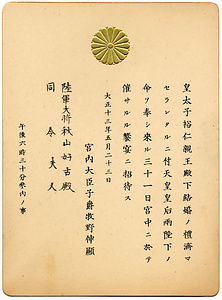 皇太子裕仁親王殿下結婚ノ禮濟マ
セラレタルニ付天皇皇后兩陛下ノ
命ヲ奉シ來ル三十一日宮中ニ於テ
催サルル饗宴ニ招待ス
大正十三年五月二十三日
宮内大臣子爵牧野伸顯
陸軍大將秋山好古殿
同令夫人
午後六時三十分參内ノ事